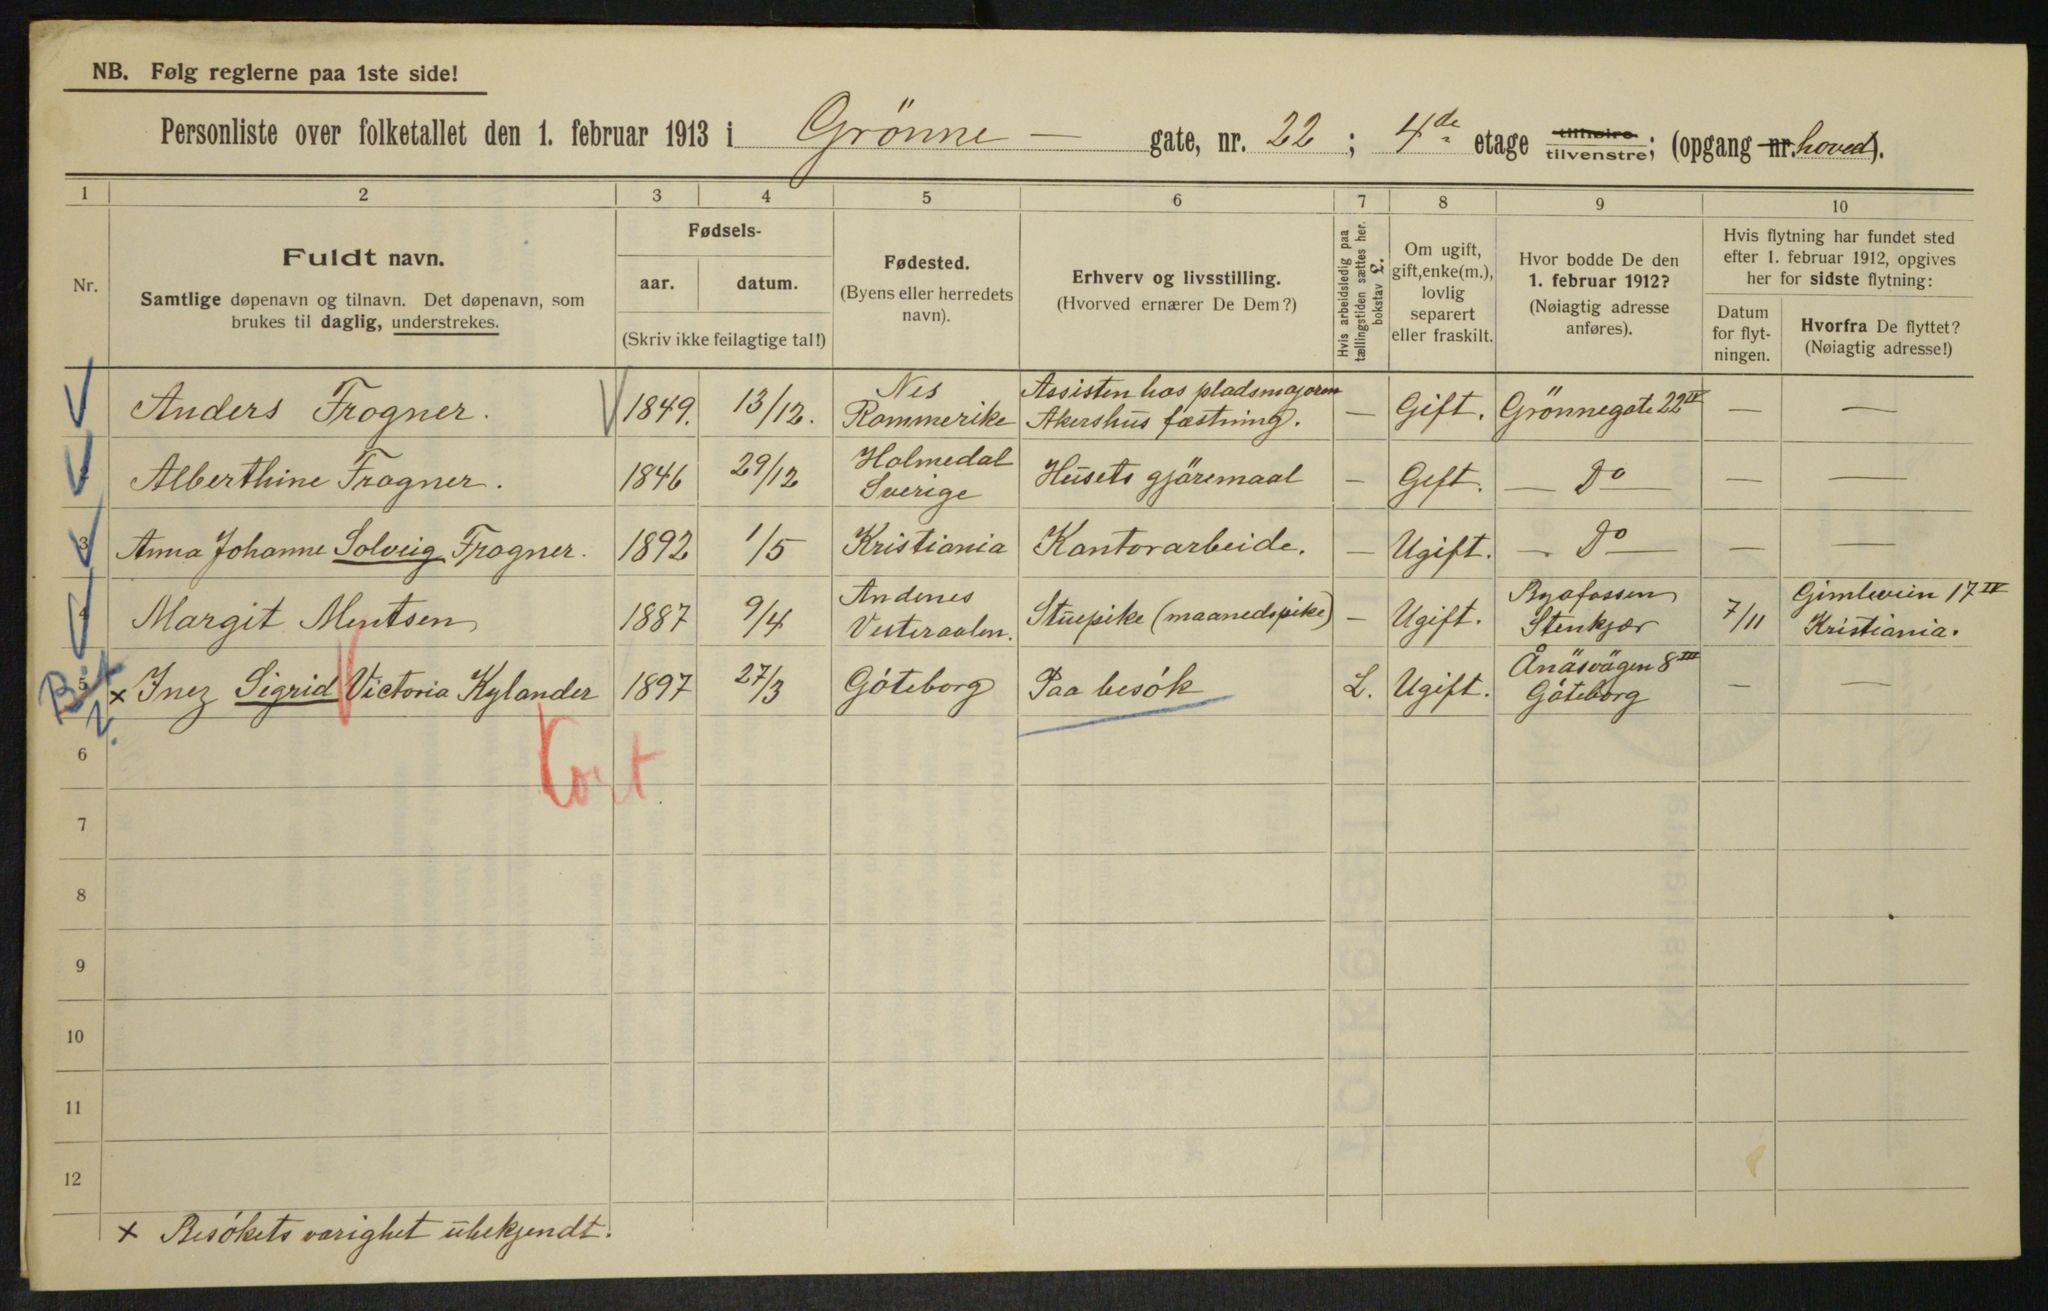 NB. Følg reglerne paa 1ste side!
Personliste over folketallet den 1. februar 1913 i Grönne — gate, nr. 22 ; 4de etage tilhøire tilvenstre; (opgang nr. hoved).
1 2 3 4 5 6 7 8 9 10
Nr.
Fuldt navn.
Samtlige døpenavn og tilnavn. Det døpenavn, som
brukes til daglig, understrekes.
Fødsels-
aar. datum.
(Skriv ikke feilagtige tal!)
Fødested.
(Byens eller herredets
navn).
Erhverv og livsstilling.
(Hvorved ernærer De Dem?)
Hvis arbeidsledig paa
tællingstiden sættes her.
bokstav L.
Om ugift,
gift, enke(m.),
lovlig
separert
eller fraskilt.
Hvor bodde De den
1. februar 1912?
(Nøiagtig adresse
anføres).
Hvis flytning har fundet sted
efter 1. februar 1912, opgives
her for sidste flytning:
Datum
for flyt-
ningen.
Hvorfra De flyttet?
(Nøiagtig adresse!)
Anders Frogner. 1849. 13/12. Nes Rommerike Assisten hos pladsmajoren Akershus fæstning. — Gift. Grönnegate 22 IV — —
2 Alberthine Frogner. 1846 29/12 Holmedal Sverige Husets gjöremaal — Gift. — Do — — —
3 Anna Johanne Solveig Frogner. 1892 1/5 Kristiania Kontorarbeide. — Ugift. — Do — — —
4 Margit Mentsen 1887 9/4 Andenes Vesteraalen. Stuepike (maanedspike) — Ugift. Stenkjær 7/11 Gimleveien 17 IV Kristiania.
5 × Inez Sigrid Victoria Kylander 1897 27/3 Göteborg Paa besök L. Ugift. Ånäsvägen 8 III Göteborg — —
Kort
6
7
8
9
10
11
12
× Besökets varighet ubekjendt.